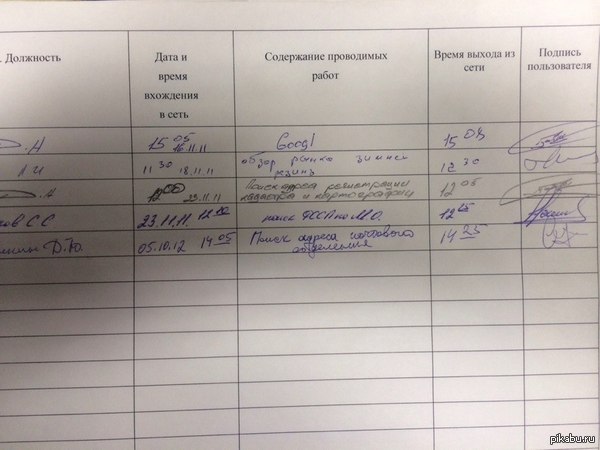 . Должность
Дата и
время
вхождения
в сеть
Содержание проводимых
работ
Время выхода из
сети
Подпись
пользователя
.А 15 05 16.11.11 Googl 15 08
11 30 18.11.11 обзор рынка зимней
резины 12 30
.А 12 00 23.11.11 Поиск адреса регистрации
кадастра и картографии 12 05
ов С С 23.11.11. поиск ФССП по М.О. 12 25
Д.Ю. 05.10.12 14 05 Поиск адреса почтового
отделения 14 25
pikabu.ru